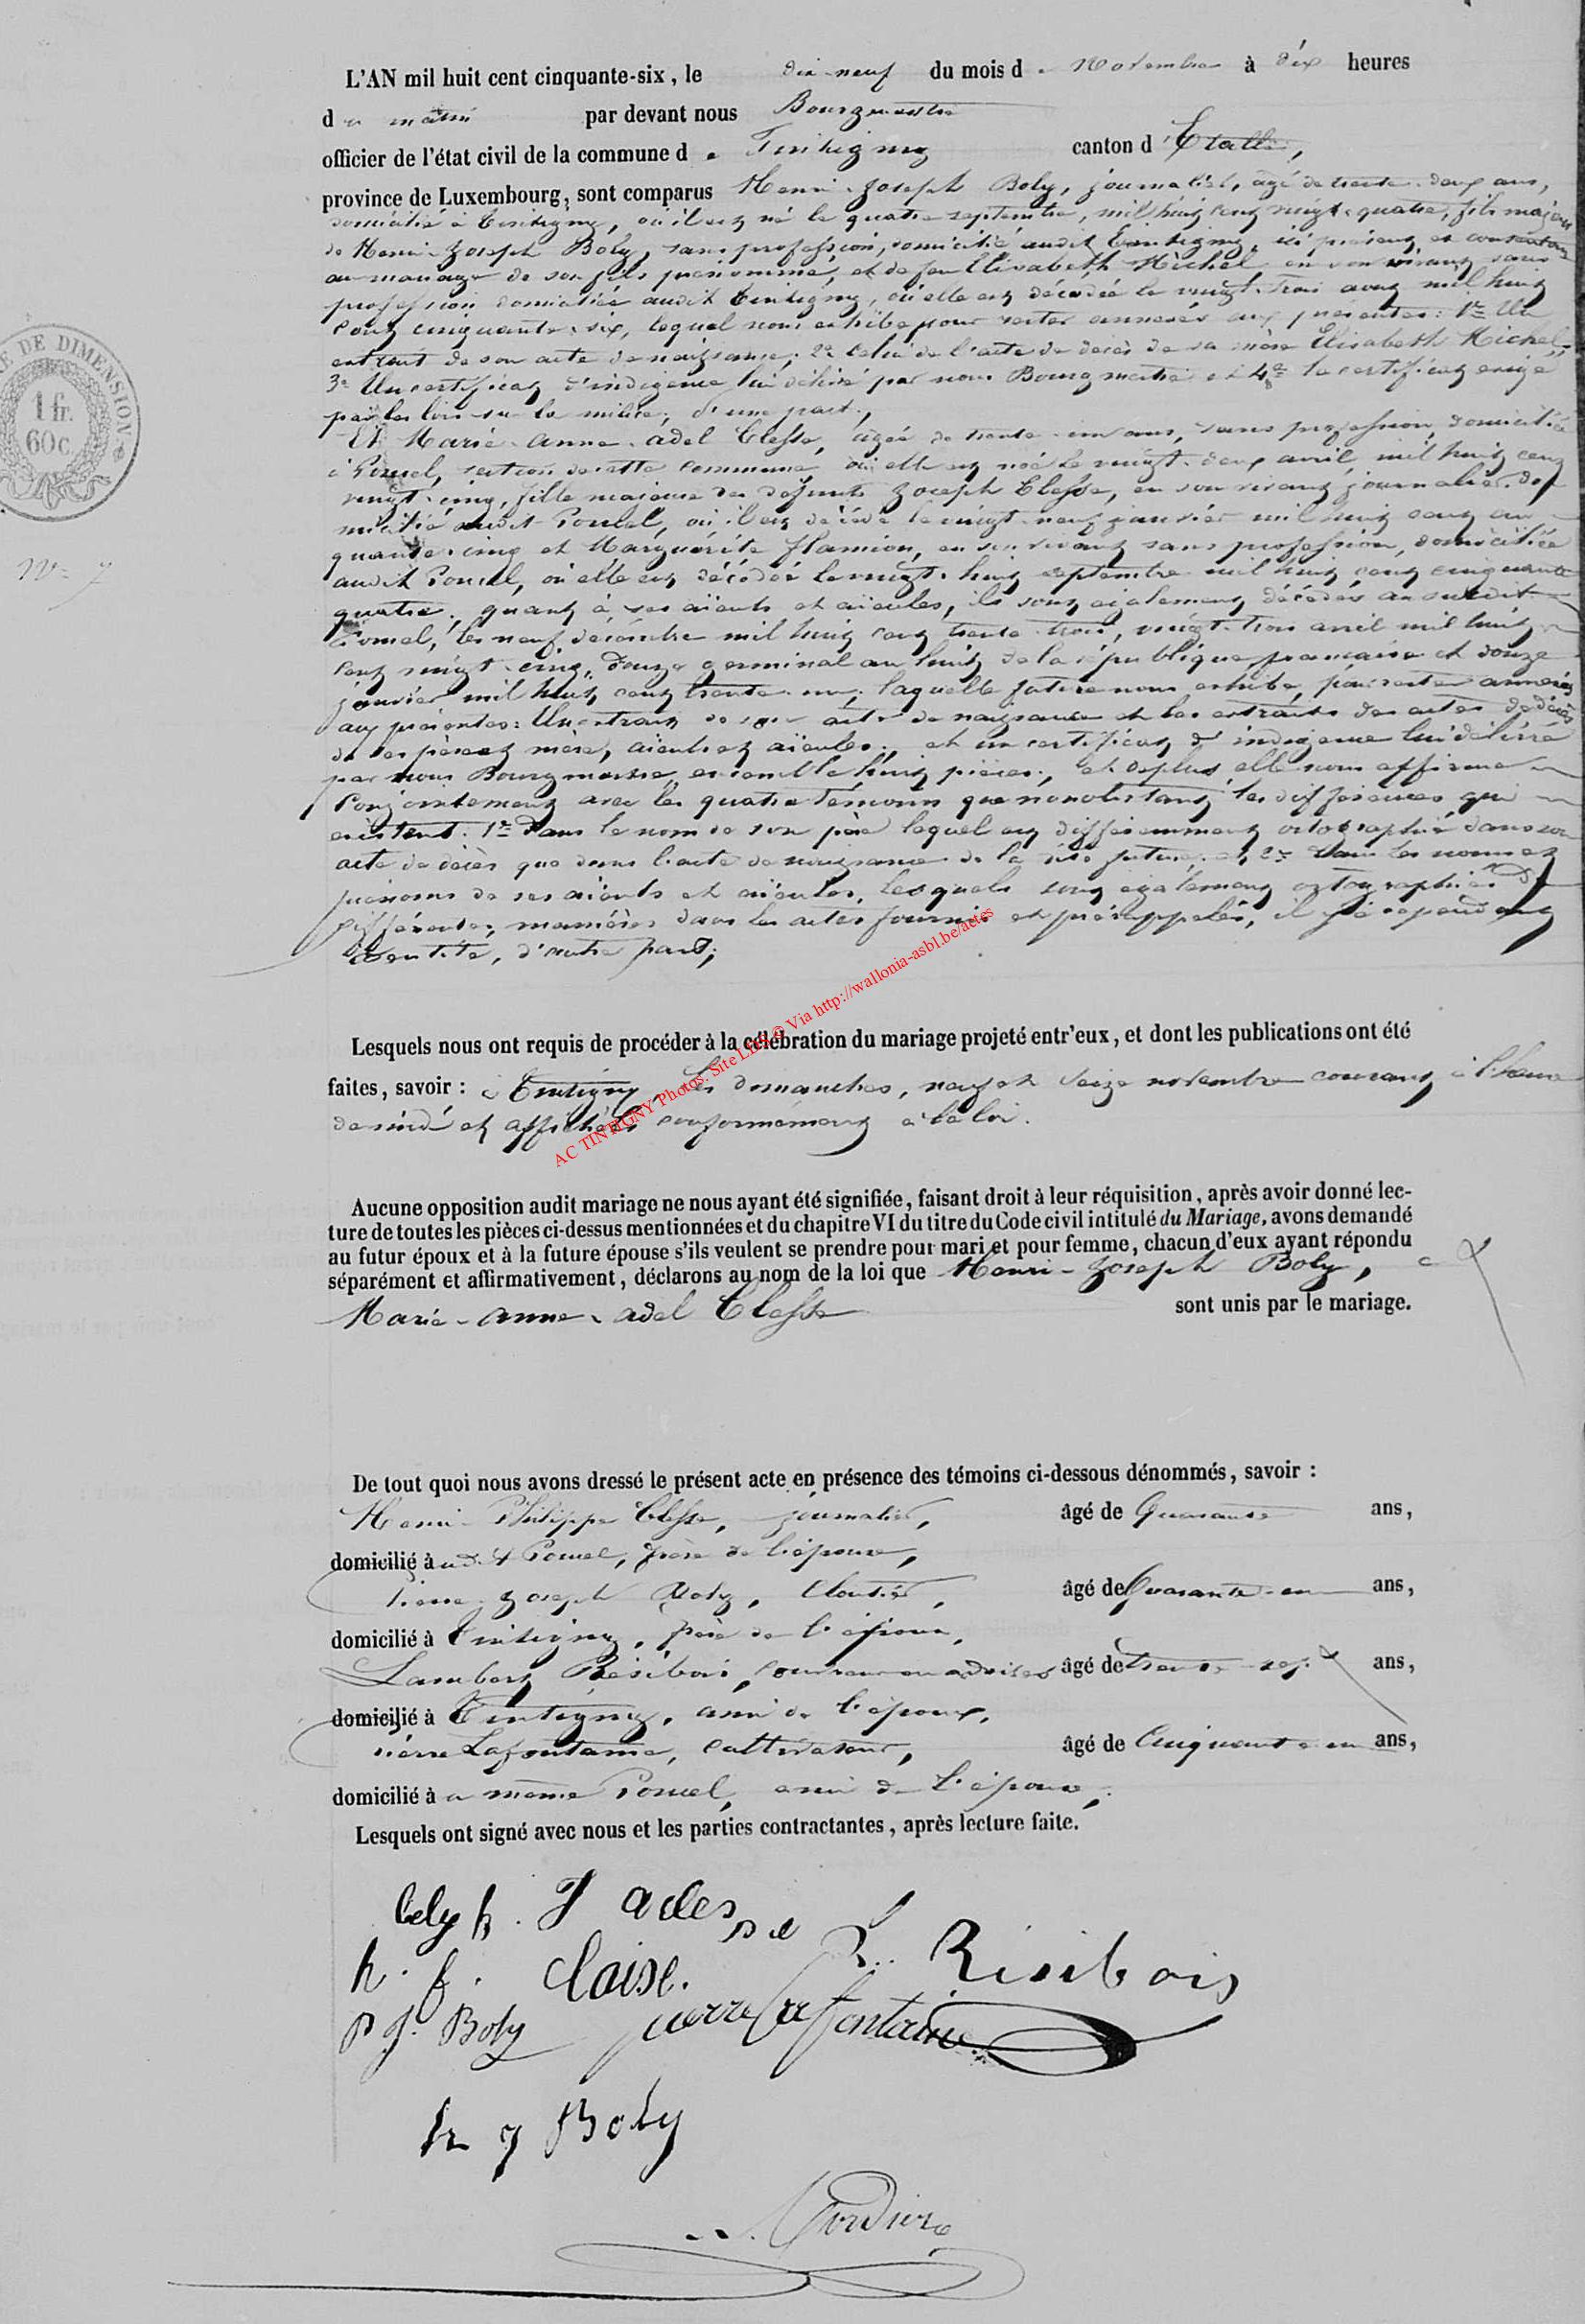 L'AN mil huit cent cinquante-six, le dix-neuf du mois de Novembre à dix heures
du matin par devant nous Bourgmestre
officier de l'état civil de la commune de Tintigny canton d'Etalle,
province de Luxembourg, sont comparus Henri-Joseph Boly, journalier, âgé de trente-deux ans,
domicilié à Tintigny, où il est né le quatre septembre, mil huit cent vingt-quatre, fils majeur
de Henri-Joseph Boly, sans profession, domicilié audit Tintigny, ici présent et consentant
au mariage de son fils prénommé, et de feu Elisabeth Michel en son vivant sans
profession domiciliée audit Tintigny, où elle est décédée le vingt-trois août mil huit
cent cinquante-six, lequel nous exhibe pour rester annexés aux présentes: 1° Un
extrait de son acte de naissance; 2° celui de l'acte de décès de sa mère Elisabeth Michel;
3° Un certificat d'indigence lui délivré par nous Bourgmestre et 4° le certificat exigé
par les lois sur la milice; d'une part;
Et Marie-Anne-Adel Clesse, âgée de trente-un ans, sans profession, domiciliée
à Poncel, section de cette commune où elle est née le vingt-deux avril mil huit cent
vingt-cinq, fille majeure des défunts Joseph Clesse, en son vivant journalier, do-
micilié audit Poncel, où il est décédé le vingt-neuf janvier mil huit cent
quarante-cinq et Marguerite Flamion, en son vivant sans profession, domiciliée
audit Poncel, où elle est décédée le vingt-huit septembre mil huit cent cinquante
quatre; quant à ses aïeuls et aïeules, ils sont également décédés au susdit
Poncel, les neuf décembre mil huit cent trente-trois, vingt-trois avril mil huit
cent vingt-cinq, douze germinal an huit de la république française et douze
janvier mil huit cent trente-un; laquelle future nous exhibe, pour rester annexés
aux présentes: Un extrait de son acte de naissance et les extraits des actes de décès
de ses père et mère, aïeuls et aïeules; et un certificat d'indigence lui délivré
par nous Bourgmestre, ensemble huit pièces; et de plus elle nous affirme
conjointement avec les quatre témoins que nonobstant les différences qui
existent: 1° Dans le nom de son père lequel est différemment ortographié dans son
acte de décès que dans l'acte de naissance de la dite future; et 2° Dans les noms et
prénoms de ses aïeuls et aïeules, lesquels sont également ortographiés de
différentes manières dans les actes fournis et prérappelés, il y a cependant
identité, d'autre part;
Lesquels nous ont requis de procéder à la célébration du mariage projeté entr'eux, et dont les publications ont été
faites, savoir : à Tintigny, les dimanches, neuf et seize novembre courant à l'heure
de midi et affichées conformément à la loi.
Aucune opposition audit mariage ne nous ayant été signifiée, faisant droit à leur réquisition, après avoir donné lec-
ture de toutes les pièces ci-dessus mentionnées et du chapitre VI du titre du Code civil intitulé du Mariage, avons demandé
au futur époux et à la future épouse s'ils veulent se prendre pour mari et pour femme, chacun d'eux ayant répondu
séparément et affirmativement, déclarons au nom de la loi que Henri-Joseph Boly, et
Marie-Anne-Adel Clesse sont unis par le mariage.
De tout quoi nous avons dressé le présent acte en présence des témoins ci-dessous dénommés, savoir :
Henri-Philippe Clesse, journalier, âgé de Quarante ans,
domicilié audit Poncel, frère de l'épouse,
Pierre-Joseph Boly, Cloutier, âgé de Quarante-un ans,
domicilié à Tintigny, frère de l'époux,
Lambert Résibois, couvreur en ardoises âgé de trente-sept ans,
domicilié à Tintigny, ami de l'époux,
Pierre Lafontaine, cultivateur, âgé de Cinquante-un ans,
domicilié au même Poncel, ami de l'époux;
Lesquels ont signé avec nous et les parties contractantes, après lecture faite.
L. Risibois
h. f. Claise.
P J. Boly pierre lafontaine
h J Boly
Cordier
E DE DIMENSION
1 fr.
60c.
N° 7
AC TINTIGNY Photos: Site LDS © Via http://wallonia-asbl.be/actes